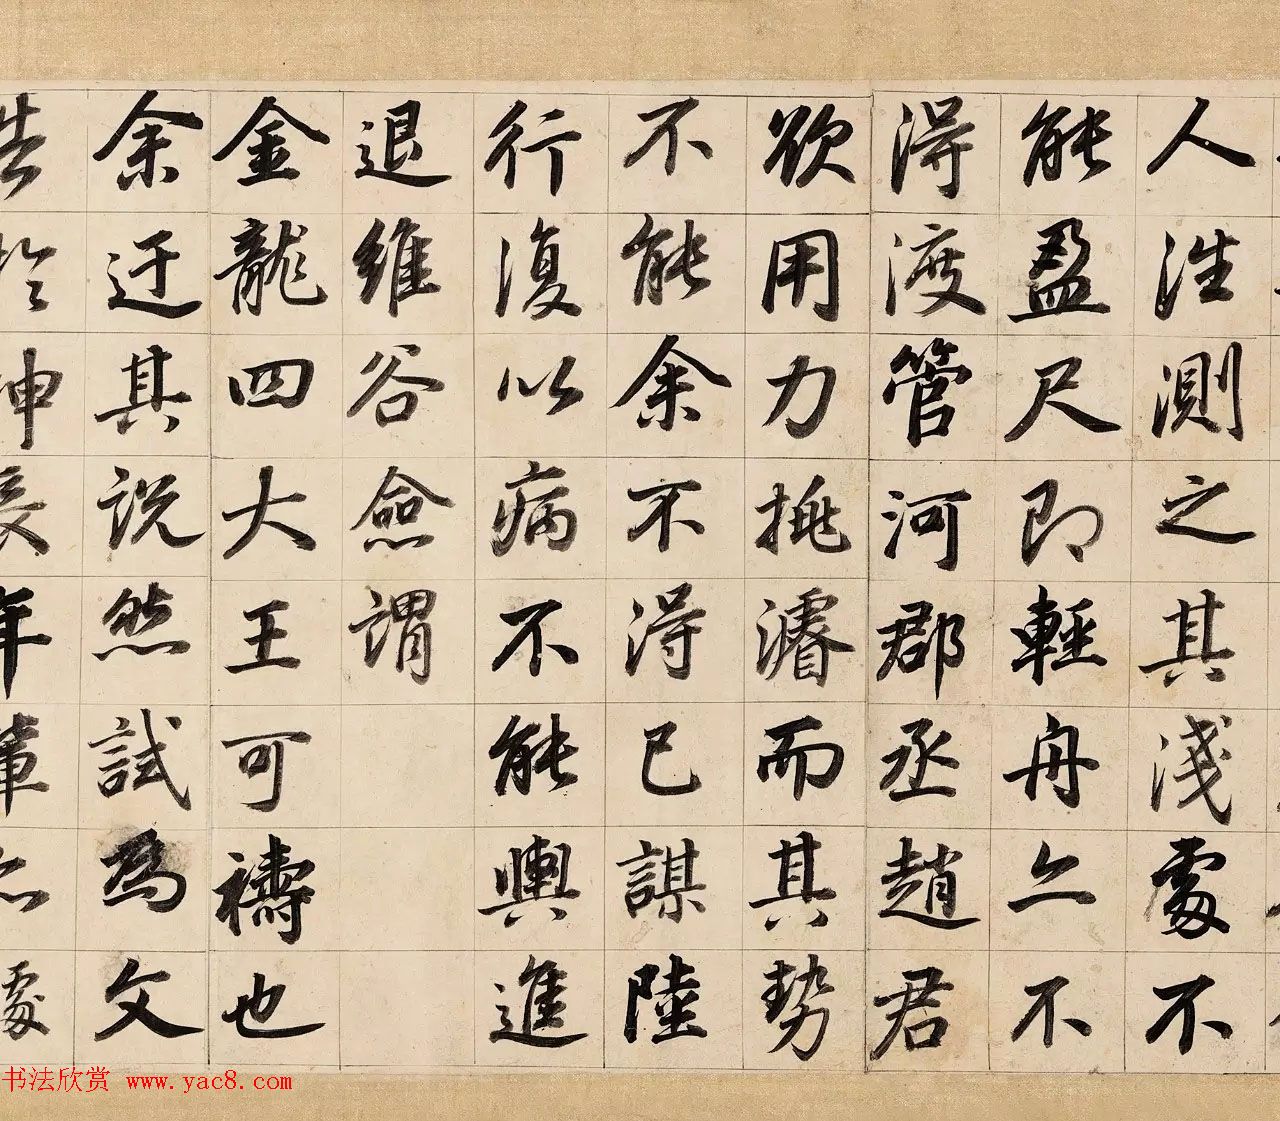 人淮測之其淺處不
能盈尺即輕舟亦不
得渡管河郡丞趙君
欲用力挑濬而其勢
不能余不得已謀陸
行復以病不能輿進
退維谷僉謂
金龍四大王可禱也
余迂其説然試為文
告於神
年輩
書法欣赏 www.yac8.com